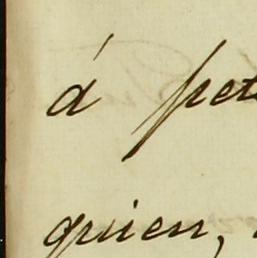 á pet
quien,